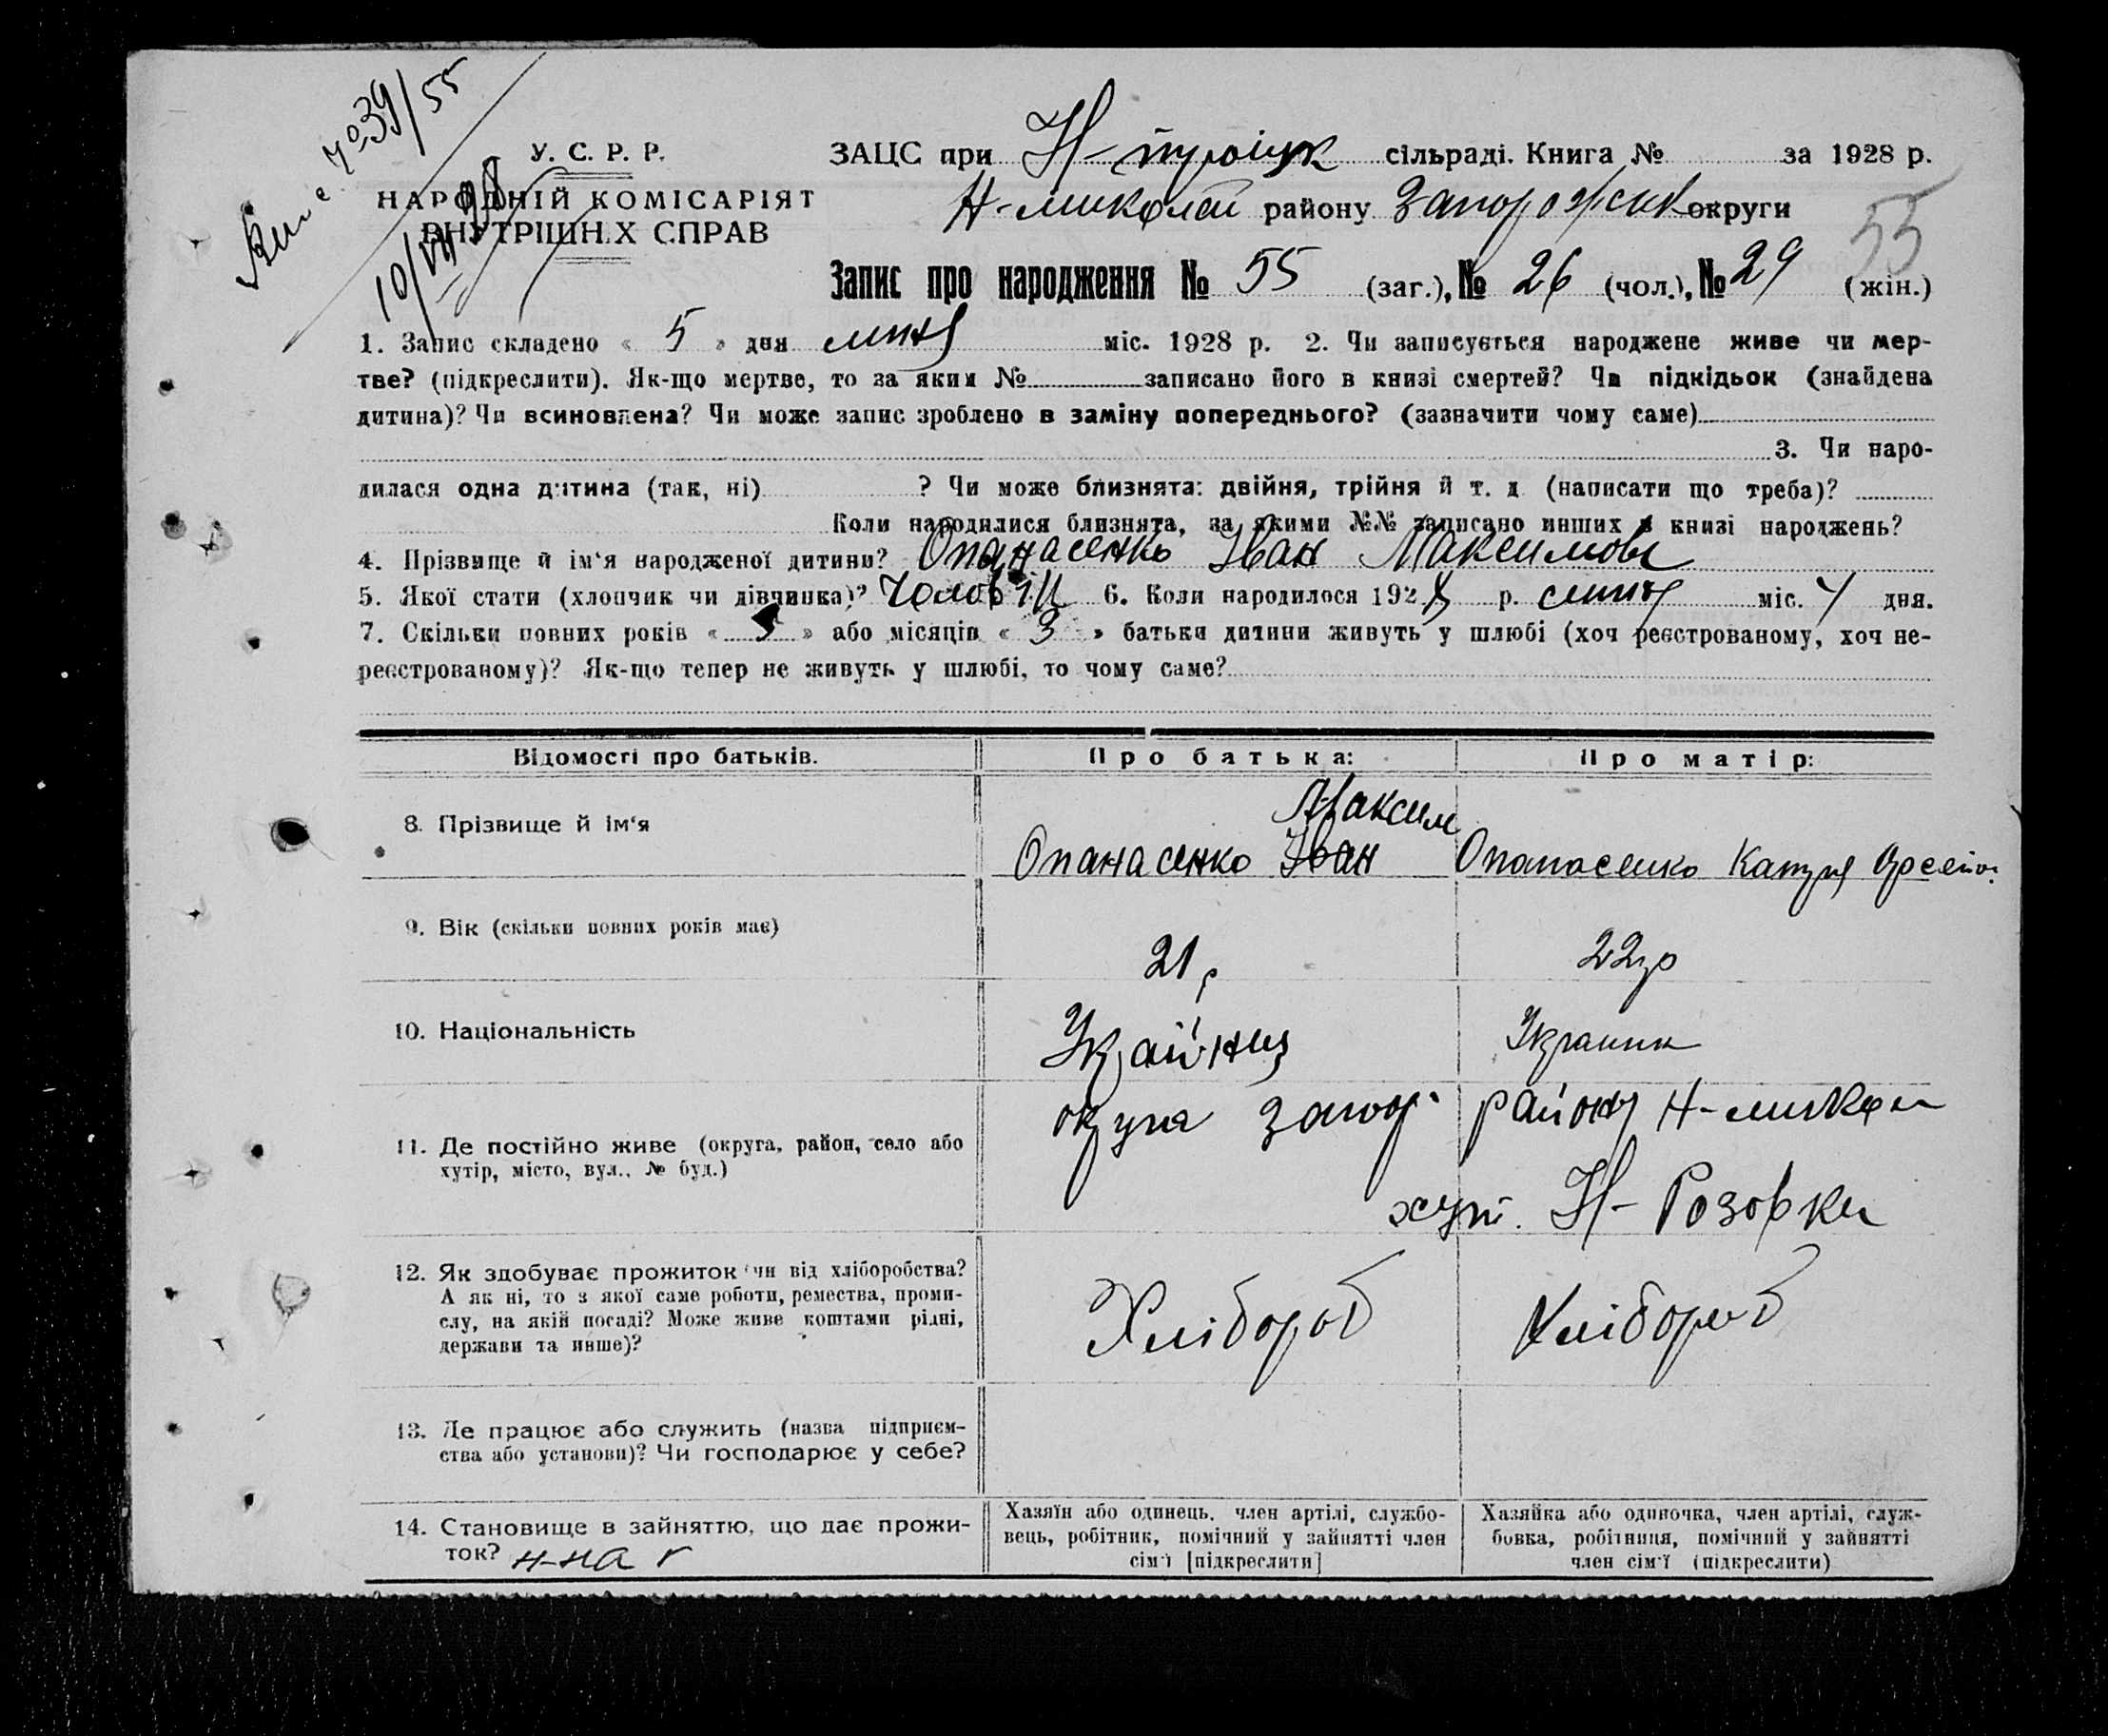 № 39/55
10/VII 28
У. С. Р. Р.
НАРОДНІЙ КОМІСАРІЯТ
ВНУТРІШН.Х СПРАВ
ЗАЦС при Н- сільраді. Книга № за 1928 р.
Н-миколай району Запорожськ округи
55
Запис про народження № 55 (заг.), № 26 (чол.), № 29 (жін.)
1. Запис складено « 5 » дня липня міс. 1928 р. 2. Чи записується народжене живе чи мер-
тве? (підкреслити). Як-що мертве, то за яким № записано його в книзі смертей? Чи підкідьок (знайдена
дитина)? Чи всиновлена? Чи може запис зроблено в заміну попереднього? (зазначити чому саме)
3. Чи наро-
дилася одна дитина (так, ні) ? Чи може близнята: двійня, трійня й т. д (написати що треба)?
Коли народилися близнята, за якими №№ записано инших в книзі народжень?
4. Прізвище й ім‘я народженої дитини? Опанасенко Іван Максимов
5. Якої стати (хлопчик чи дівчинка)? Чоловіч 6. Коли народилося 1928 р. липня міс. 4 дня.
7. Скільки повних років « » або місяців « 3 » батьки дитини живуть у шлюбі (хоч реєстрованому, хоч не-
реєстрованому)? Як-що тепер не живуть у шлюбі, то чому саме?
Відомості про батьків.
Про батька:
Про матір:
8. Прізвище й ім‘я
Максим
Опанасенко Іван
Опанасенко
9. Вік (скільки повних років має)
21р
22р
10. Національність
Українец
Украинк
11. Де постійно живе (округа, район, село або
хутір, місто, вул., № буд.)
округа Запор. району Н-микол
хут. Н-Розовки
12. Як здобуває прожиток чи від хліборобства?
А як ні, то з якої саме роботи, ремества, проми-
слу, на якій посаді? Може живе коштами рідні,
держави та инше)?
Хлібороб
Хлібороб
13. Де працює або служить (назва підприєм-
ства або установи)? Чи господарює у себе?
14. Становище в зайняттю, що дає прожи-
ток?
Хазяїн або одинець, член артілі, службо-
вець, робітник, помічний у зайнятті член
сім‘ї [підкреслити]
Хазяйка або одиночка, член артілі, служ-
бовка, робітниця, помічний у зайнятті
член сім‘ї (підкреслити)